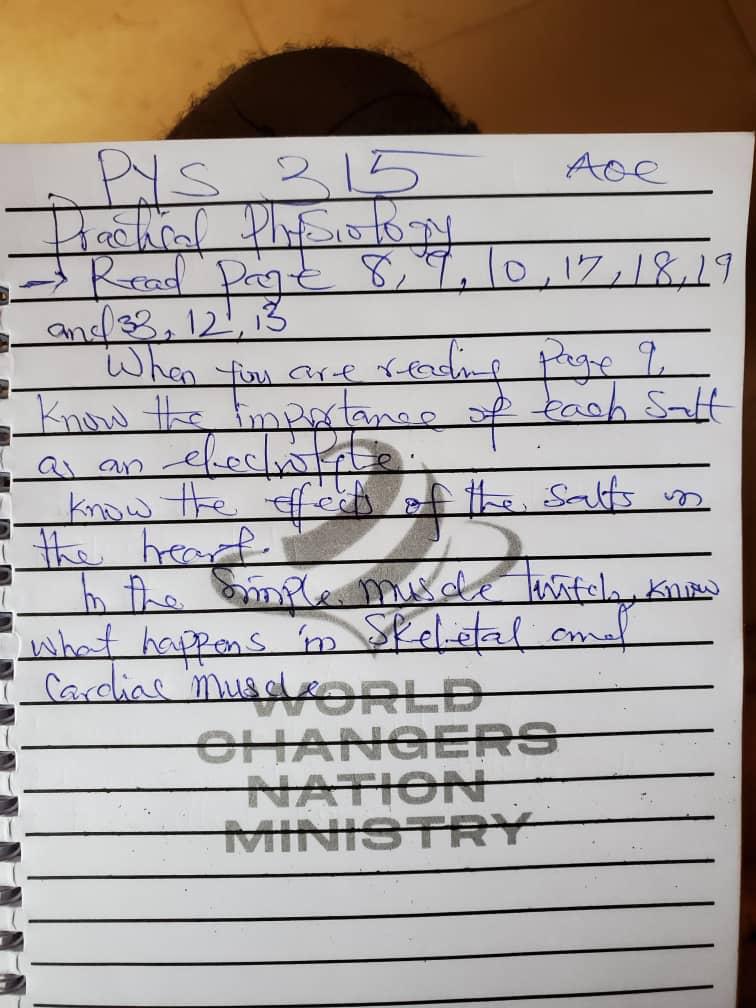 PYS 315 AOC
Practical Physiology
→ Read page 8, 9, 10, 17, 18, 19
and 33, 12, 13
When you are reading page 9,
Know the importance of each Salt
as an electrolyte.
Know the effects of the Salts on
the heart.
In the Simple muscle Twitch, Know
what happens in Skeletal and
Cardiac Muscle
WORLD
CHANGERS
NATION
MINISTRY